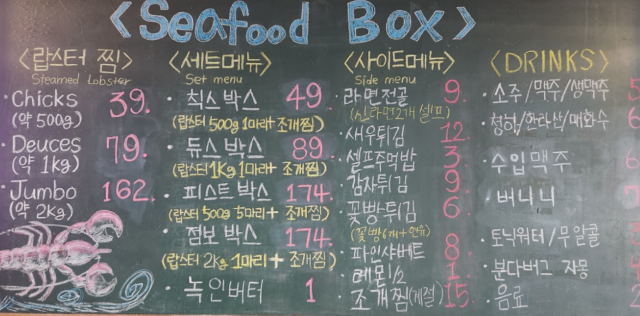 <Seafood Box>
<랍스터 찜>
Steamed Lobster
· Chicks 39.
(약 500g)
· Deuces 79.
(약 1kg)
· Jumbo 162.
(약 2kg)
<세트메뉴>
Set menu
· 칙스 박스 49.
(랍스터 500g 1마리+ 조개찜)
· 듀스 박스 89.
(랍스터 1kg 1마리+ 조개찜)
· 피스트 박스 174.
(랍스터 500g 5마리+ 조개찜)
· 점보 박스 174.
(랍스터 2kg 1마리+ 조개찜)
· 녹인버터 1
<사이드메뉴>
Side menu
· 라면전골 9.
(신라면2개 셀프)
· 새우튀김 12
· 셀프주먹밥 3.
· 감자튀김 9.
· 꽃빵튀김 6.
(꽃빵6개+연유)
· 파인샤베트 8.
· 레몬1/2 1.
· 조개찜(계절) 15.
<DRINKS>
· 소주/맥주/생맥주 5
· 청하/한라산/매화수 6
· 수입맥주
· 버니니
· 토닉워터/무알콜
· 분다버그 자몽
· 음료 2